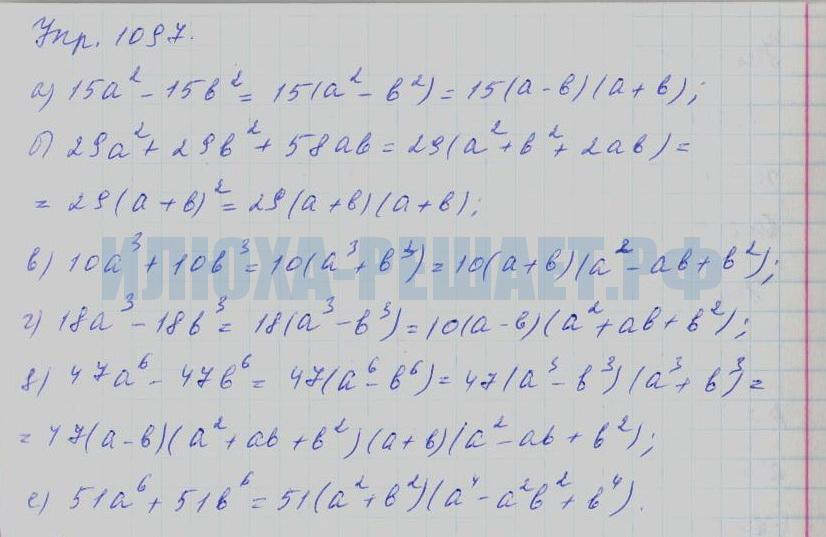 Упр. 1097.
а) 15a² - 15b² = 15(a² - b²) = 15(a - b)(a + b);
б) 29a² + 29b² + 58ab = 29(a² + b² + 2ab) =
= 29(a + b)² = 29(a + b)(a + b);
в) 10a³ + 10b³ = 10(a³ + b³) = 10(a + b)(a² - ab + b²);
г) 18a³ - 18b³ = 18(a³ - b³) = 10(a - b)(a² + ab + b²);
д) 47a⁶ - 47b⁶ = 47(a⁶ - b⁶) = 47(a³ - b³)(a³ + b³) =
= 47(a - b)(a² + ab + b²)(a + b)(a² - ab + b²);
е) 51a⁶ + 51b⁶ = 51(a² + b²)(a⁴ - a²b² + b⁴).
ИЛЮХА-РЕШАЕТ.РФ